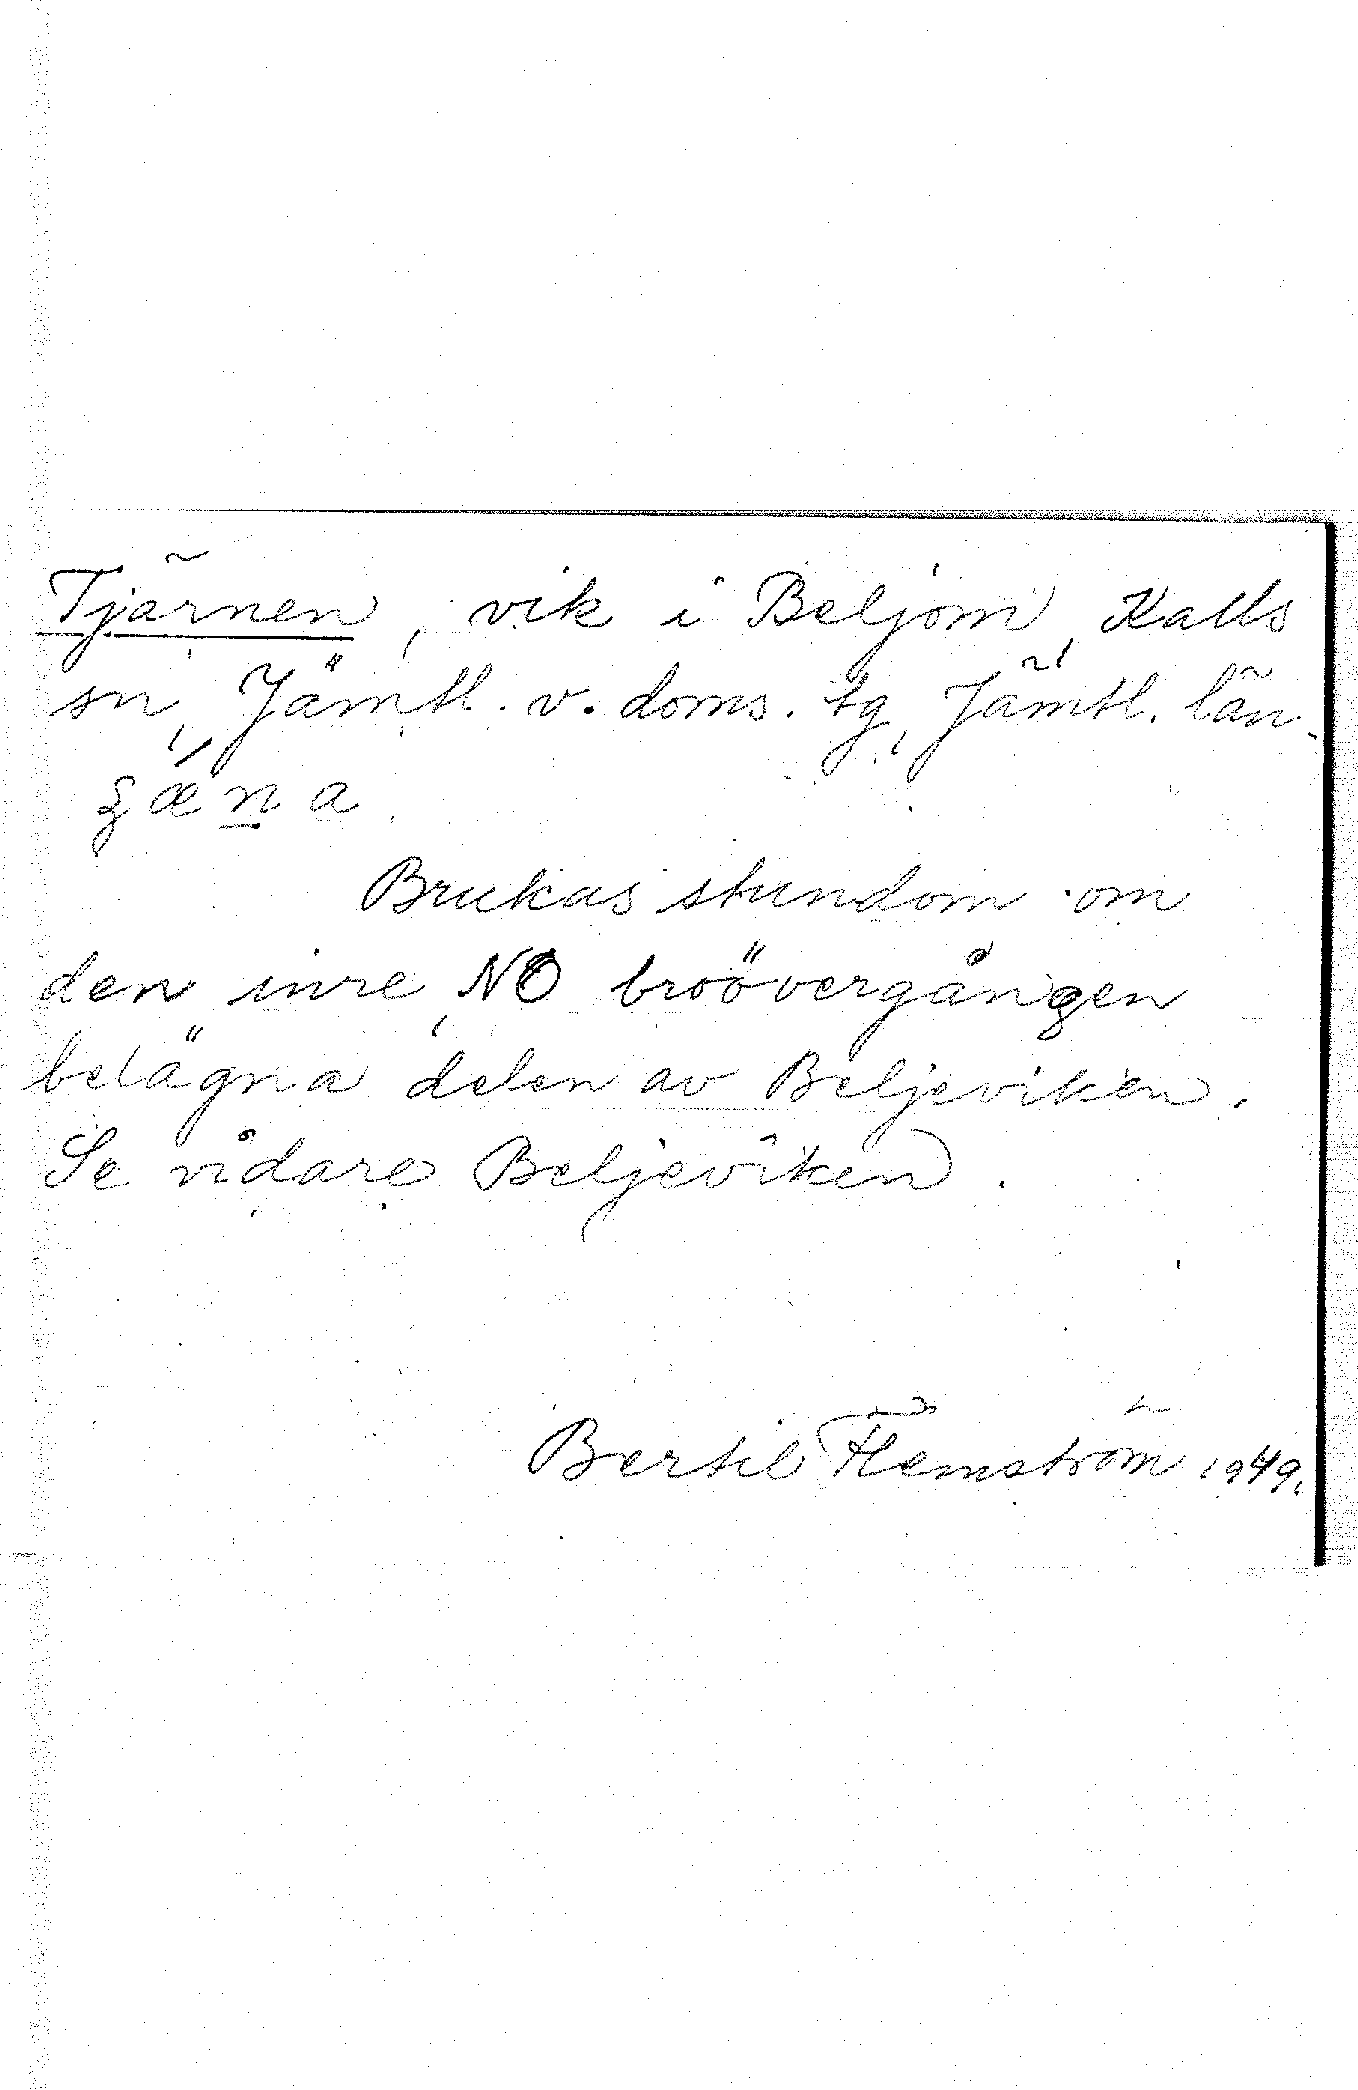 Tjärnen, vik i Beljom, Kalls
sn, Jämtl. v. doms. tg, Jämtl. län.
Brukas stundom om
den inre, NO broövergången
belägna delen av Beljeviken.
Se vidare Beljeviken.
Bertil Flemström 1949.